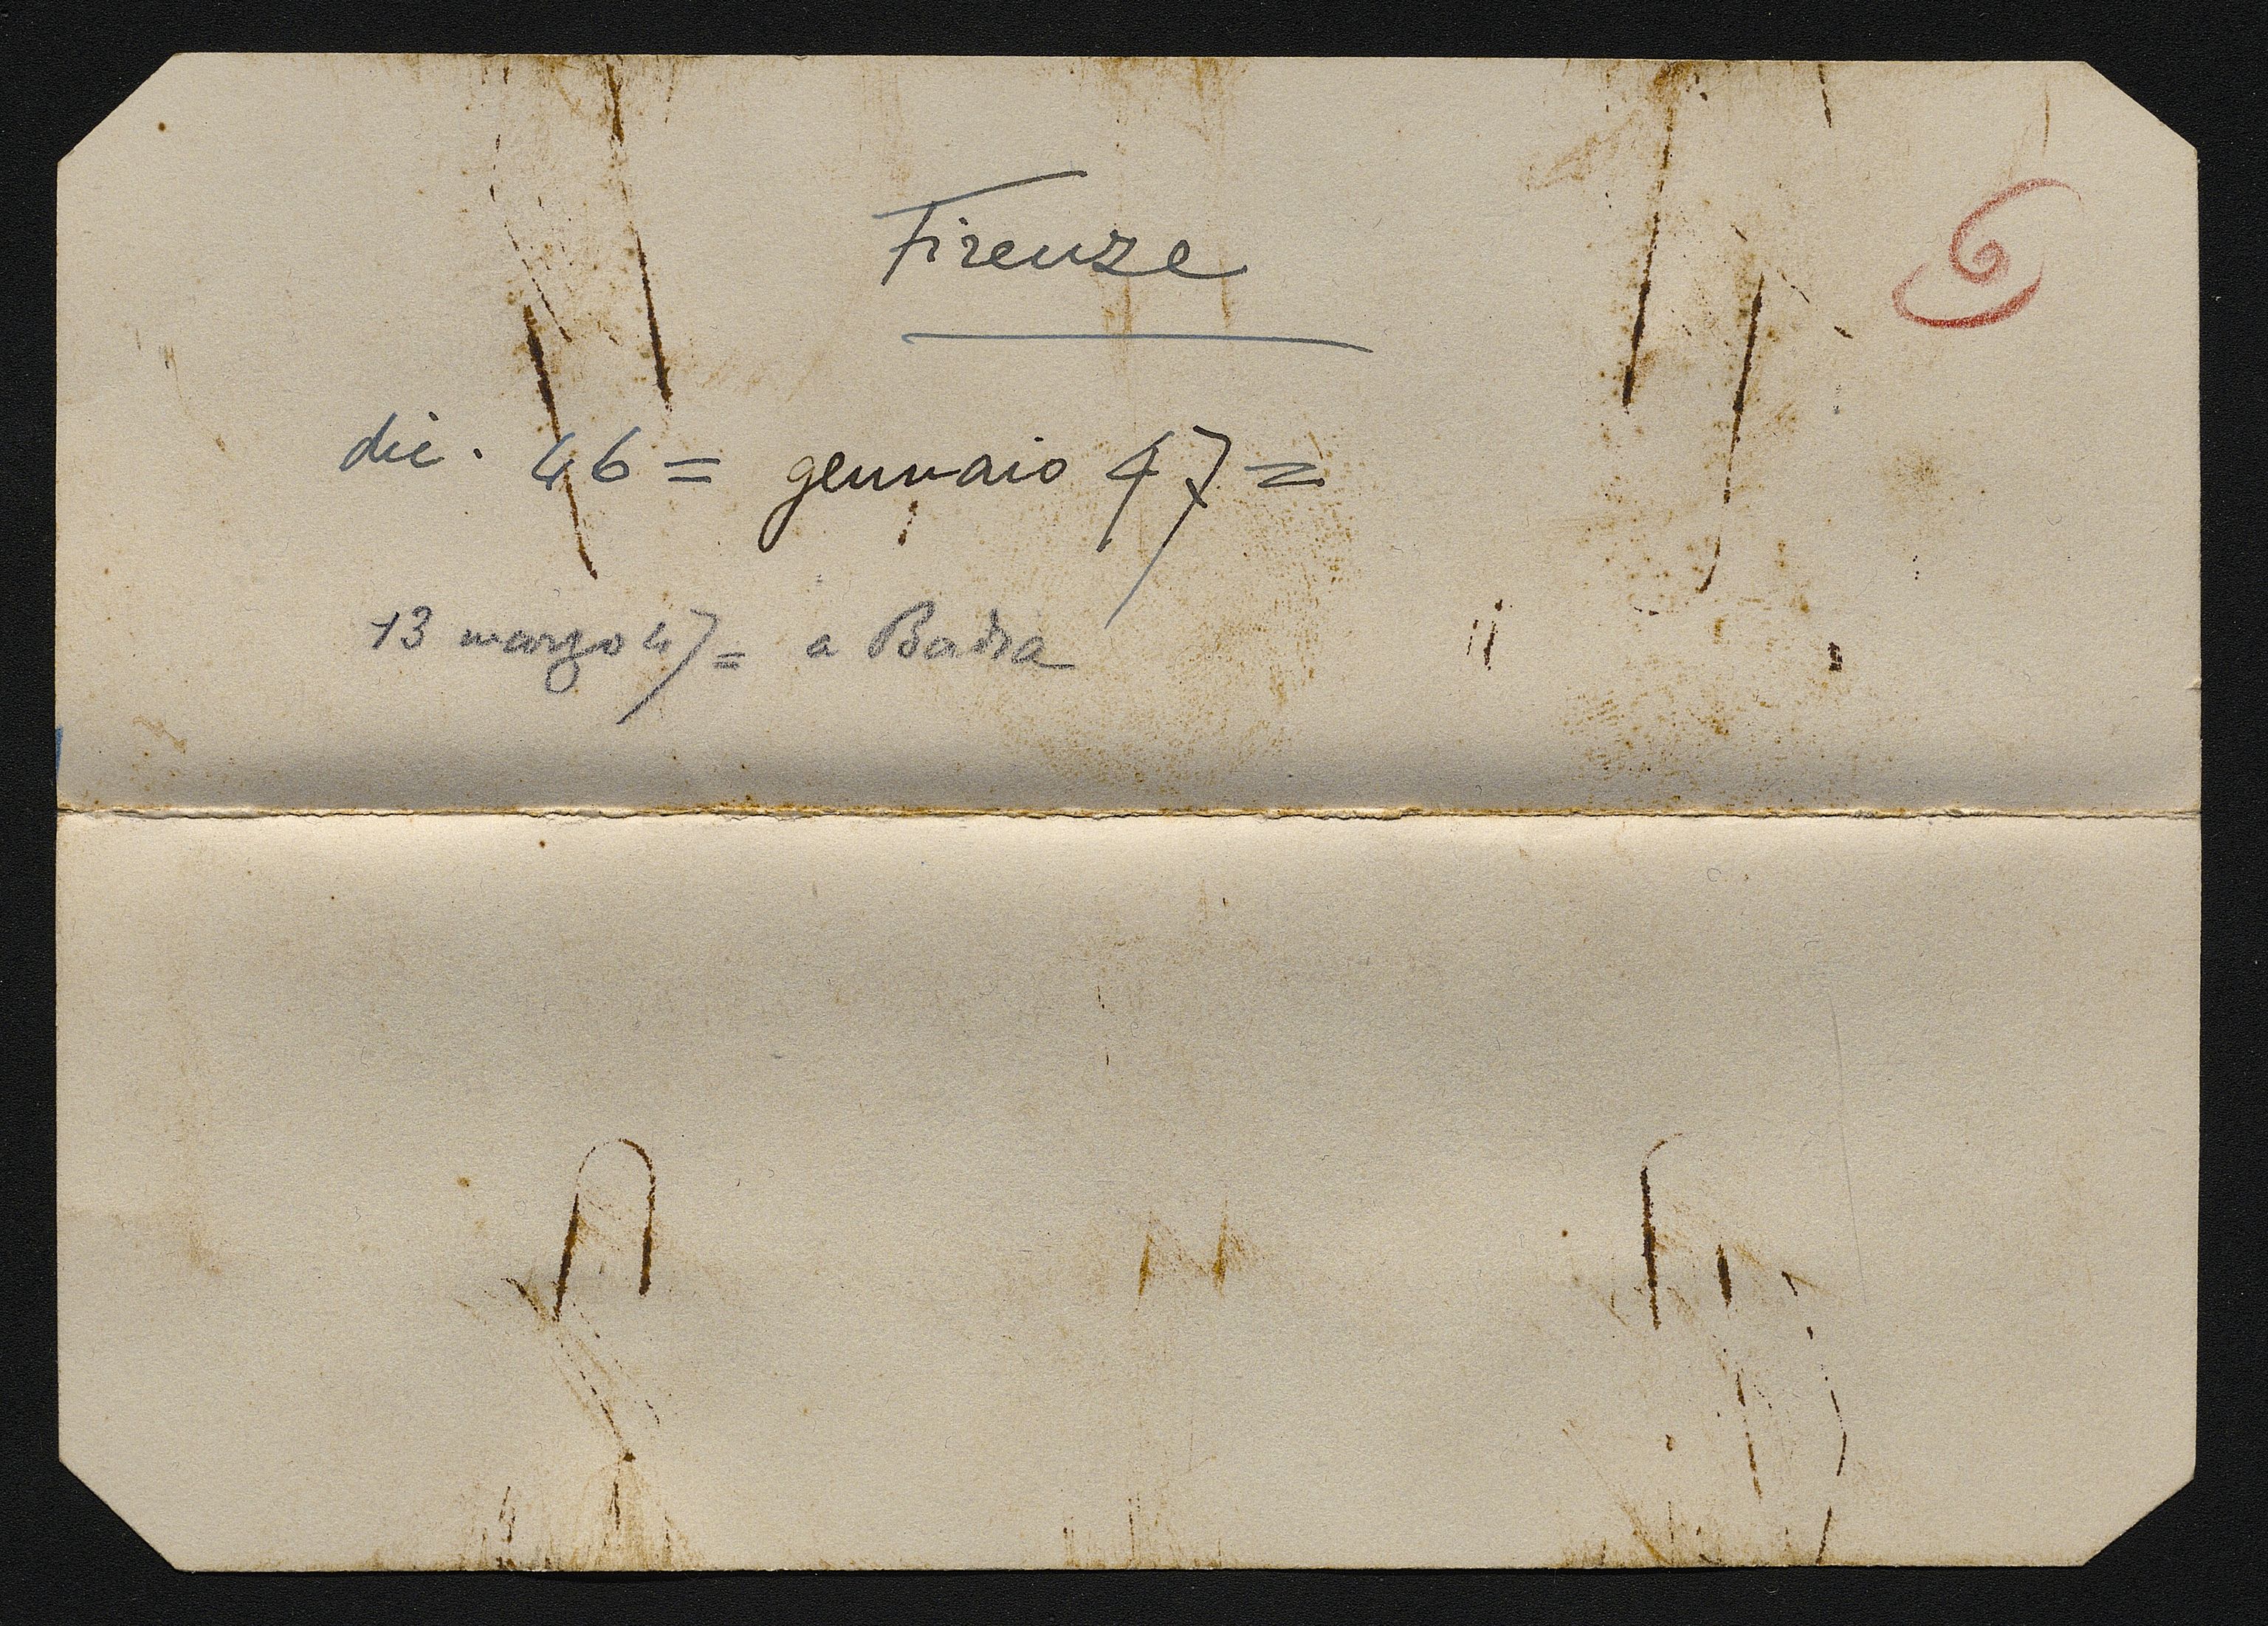 Firenze
dic. 46 = gennaio 47 =
13 marzo 47 = a Badia